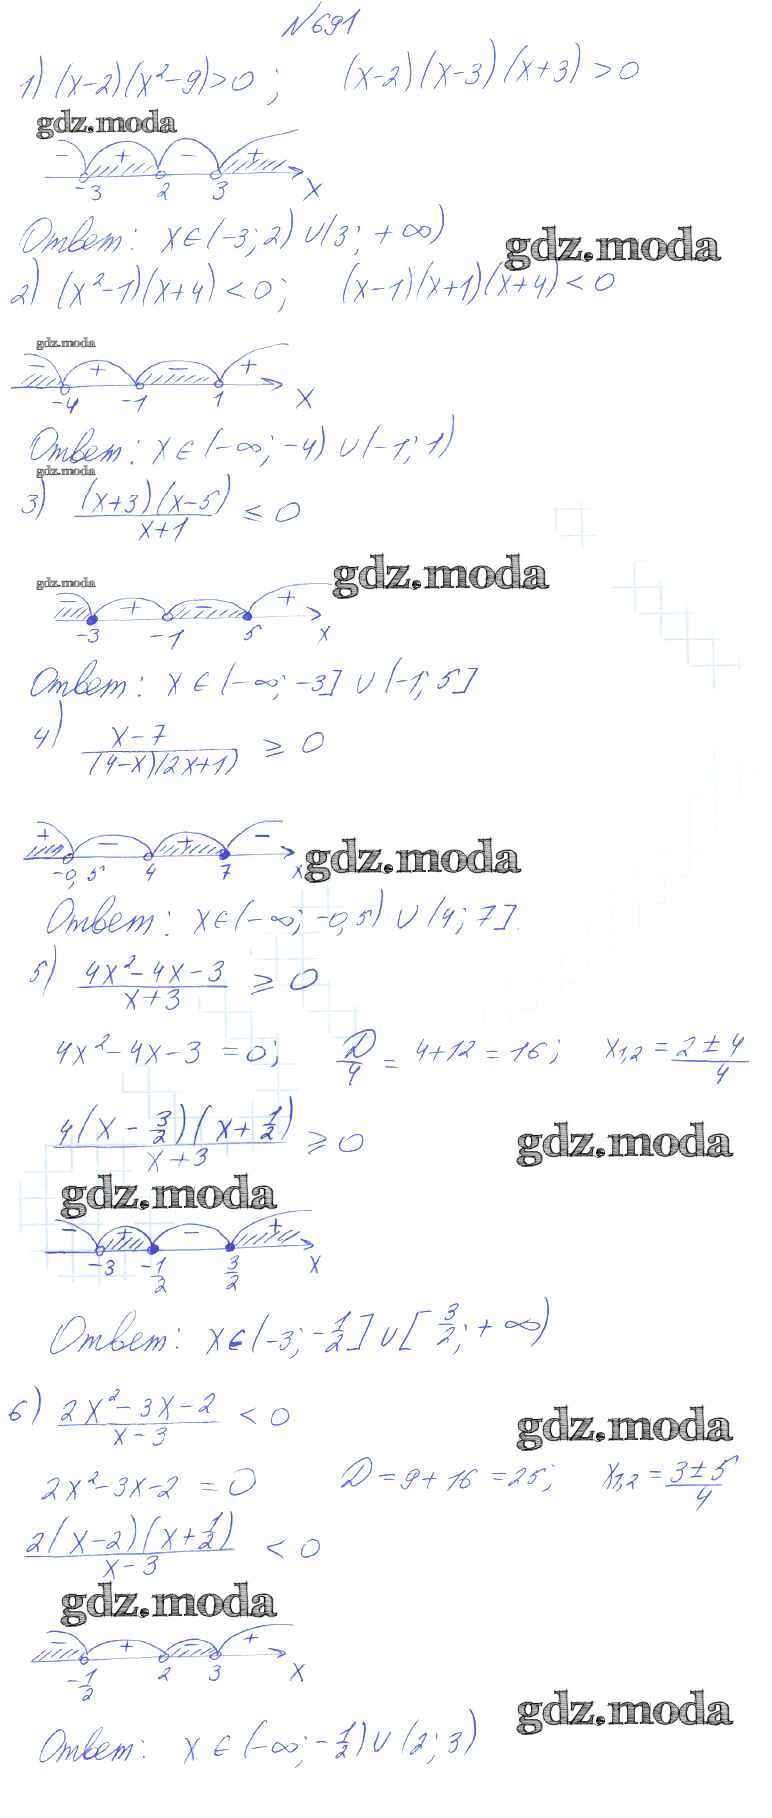 №691
1) (x-2)(x²-9)>0; (x-2)(x-3)(x+3)>0
gdz.moda
- + - +
-3 2 3 x
Ответ: x∈(-3; 2)∪(3; +∞)
gdz.moda
2) (x²-1)(x+4)<0; (x-1)(x+1)(x+4)<0
gdz.moda
- + - +
-4 -1 1 x
Ответ: x∈(-∞; -4)∪(-1; 1)
gdz.moda
3) (x+3)(x-5)/(x+1) ≤ 0
gdz.moda
gdz.moda
- + - +
-3 -1 5 x
Ответ: x∈(-∞; -3]∪(-1; 5]
4) (x-7)/((4-x)(2x+1)) ≥ 0
+ - + -
gdz.moda
-0,5 4 7 x
Ответ: x∈(-∞; -0,5)∪(4; 7].
5) (4x²-4x-3)/(x+3) ≥ 0
4x²-4x-3=0; D/4=4+12=16; x₁,₂=(2±4)/4
4(x-3/2)(x+1/2)/(x+3) ≥ 0
gdz.moda
gdz.moda
- + - +
-3 -1/2 3/2 x
Ответ: x∈(-3; -1/2]∪[3/2; +∞)
6) (2x²-3x-2)/(x-3) < 0
gdz.moda
2x²-3x-2=0 D=9+16=25; x₁,₂=(3±5)/4
2(x-2)(x+1/2)/(x-3) < 0
gdz.moda
- + - +
-1/2 2 3 x
gdz.moda
Ответ: x∈(-∞; -1/2)∪(2; 3)